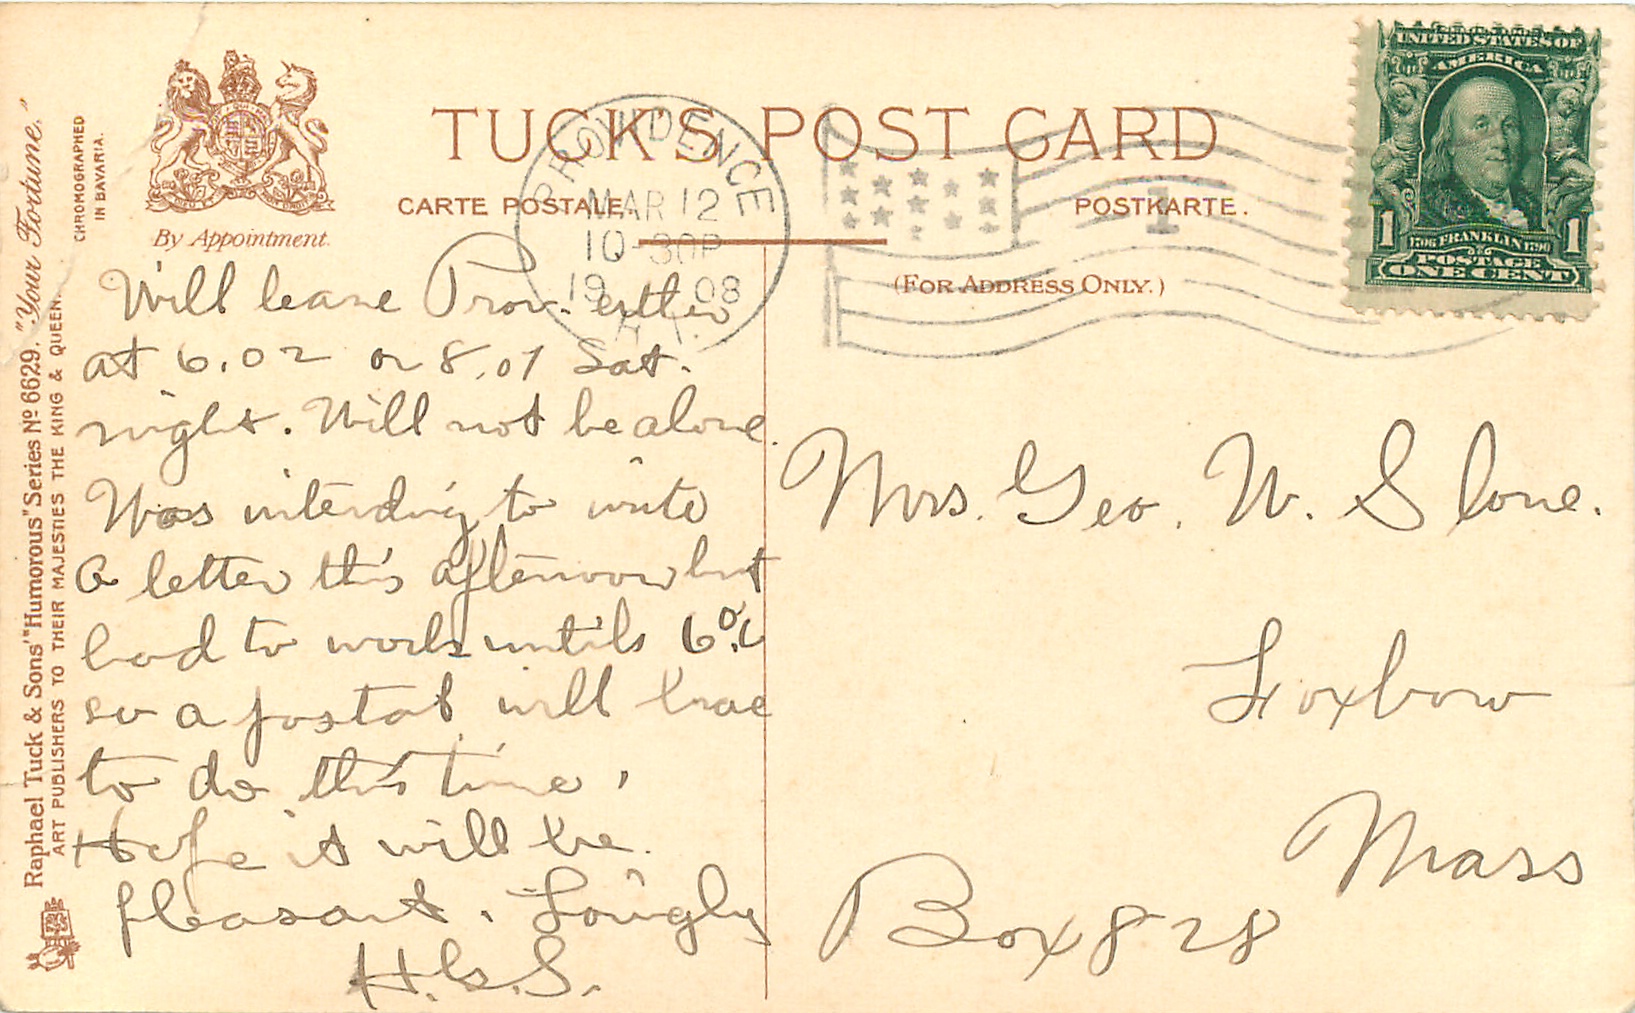 TUCK'S POST CARD
CARTE POSTALE.
POSTKARTE.
(FOR ADDRESS ONLY.)
By Appointment.
CHROMOGRAPHED
IN BAVARIA.
Raphael Tuck & Sons' "Humorous" Series Nº 6629. "Your Fortune."
ART PUBLISHERS TO THEIR MAJESTIES THE KING & QUEEN.
PROVIDENCE
MAR 12
10-30P
1908
R.I.
1
UNITED STATES OF
AMERICA
1706 FRANKLIN 1790
POSTAGE
1 ONE CENT 1
Will leave Prov. either
at 6.02 or 8.01 Sat.
night. Will not be alone.
Was intending to write
a letter this afternoon but
had to work until 6
so a postal will have
to do this time.
Hope it will be
pleasant. Lovingly
H. S.
Mrs. Geo. W. Slone.
Foxboro
Mass
Box 828